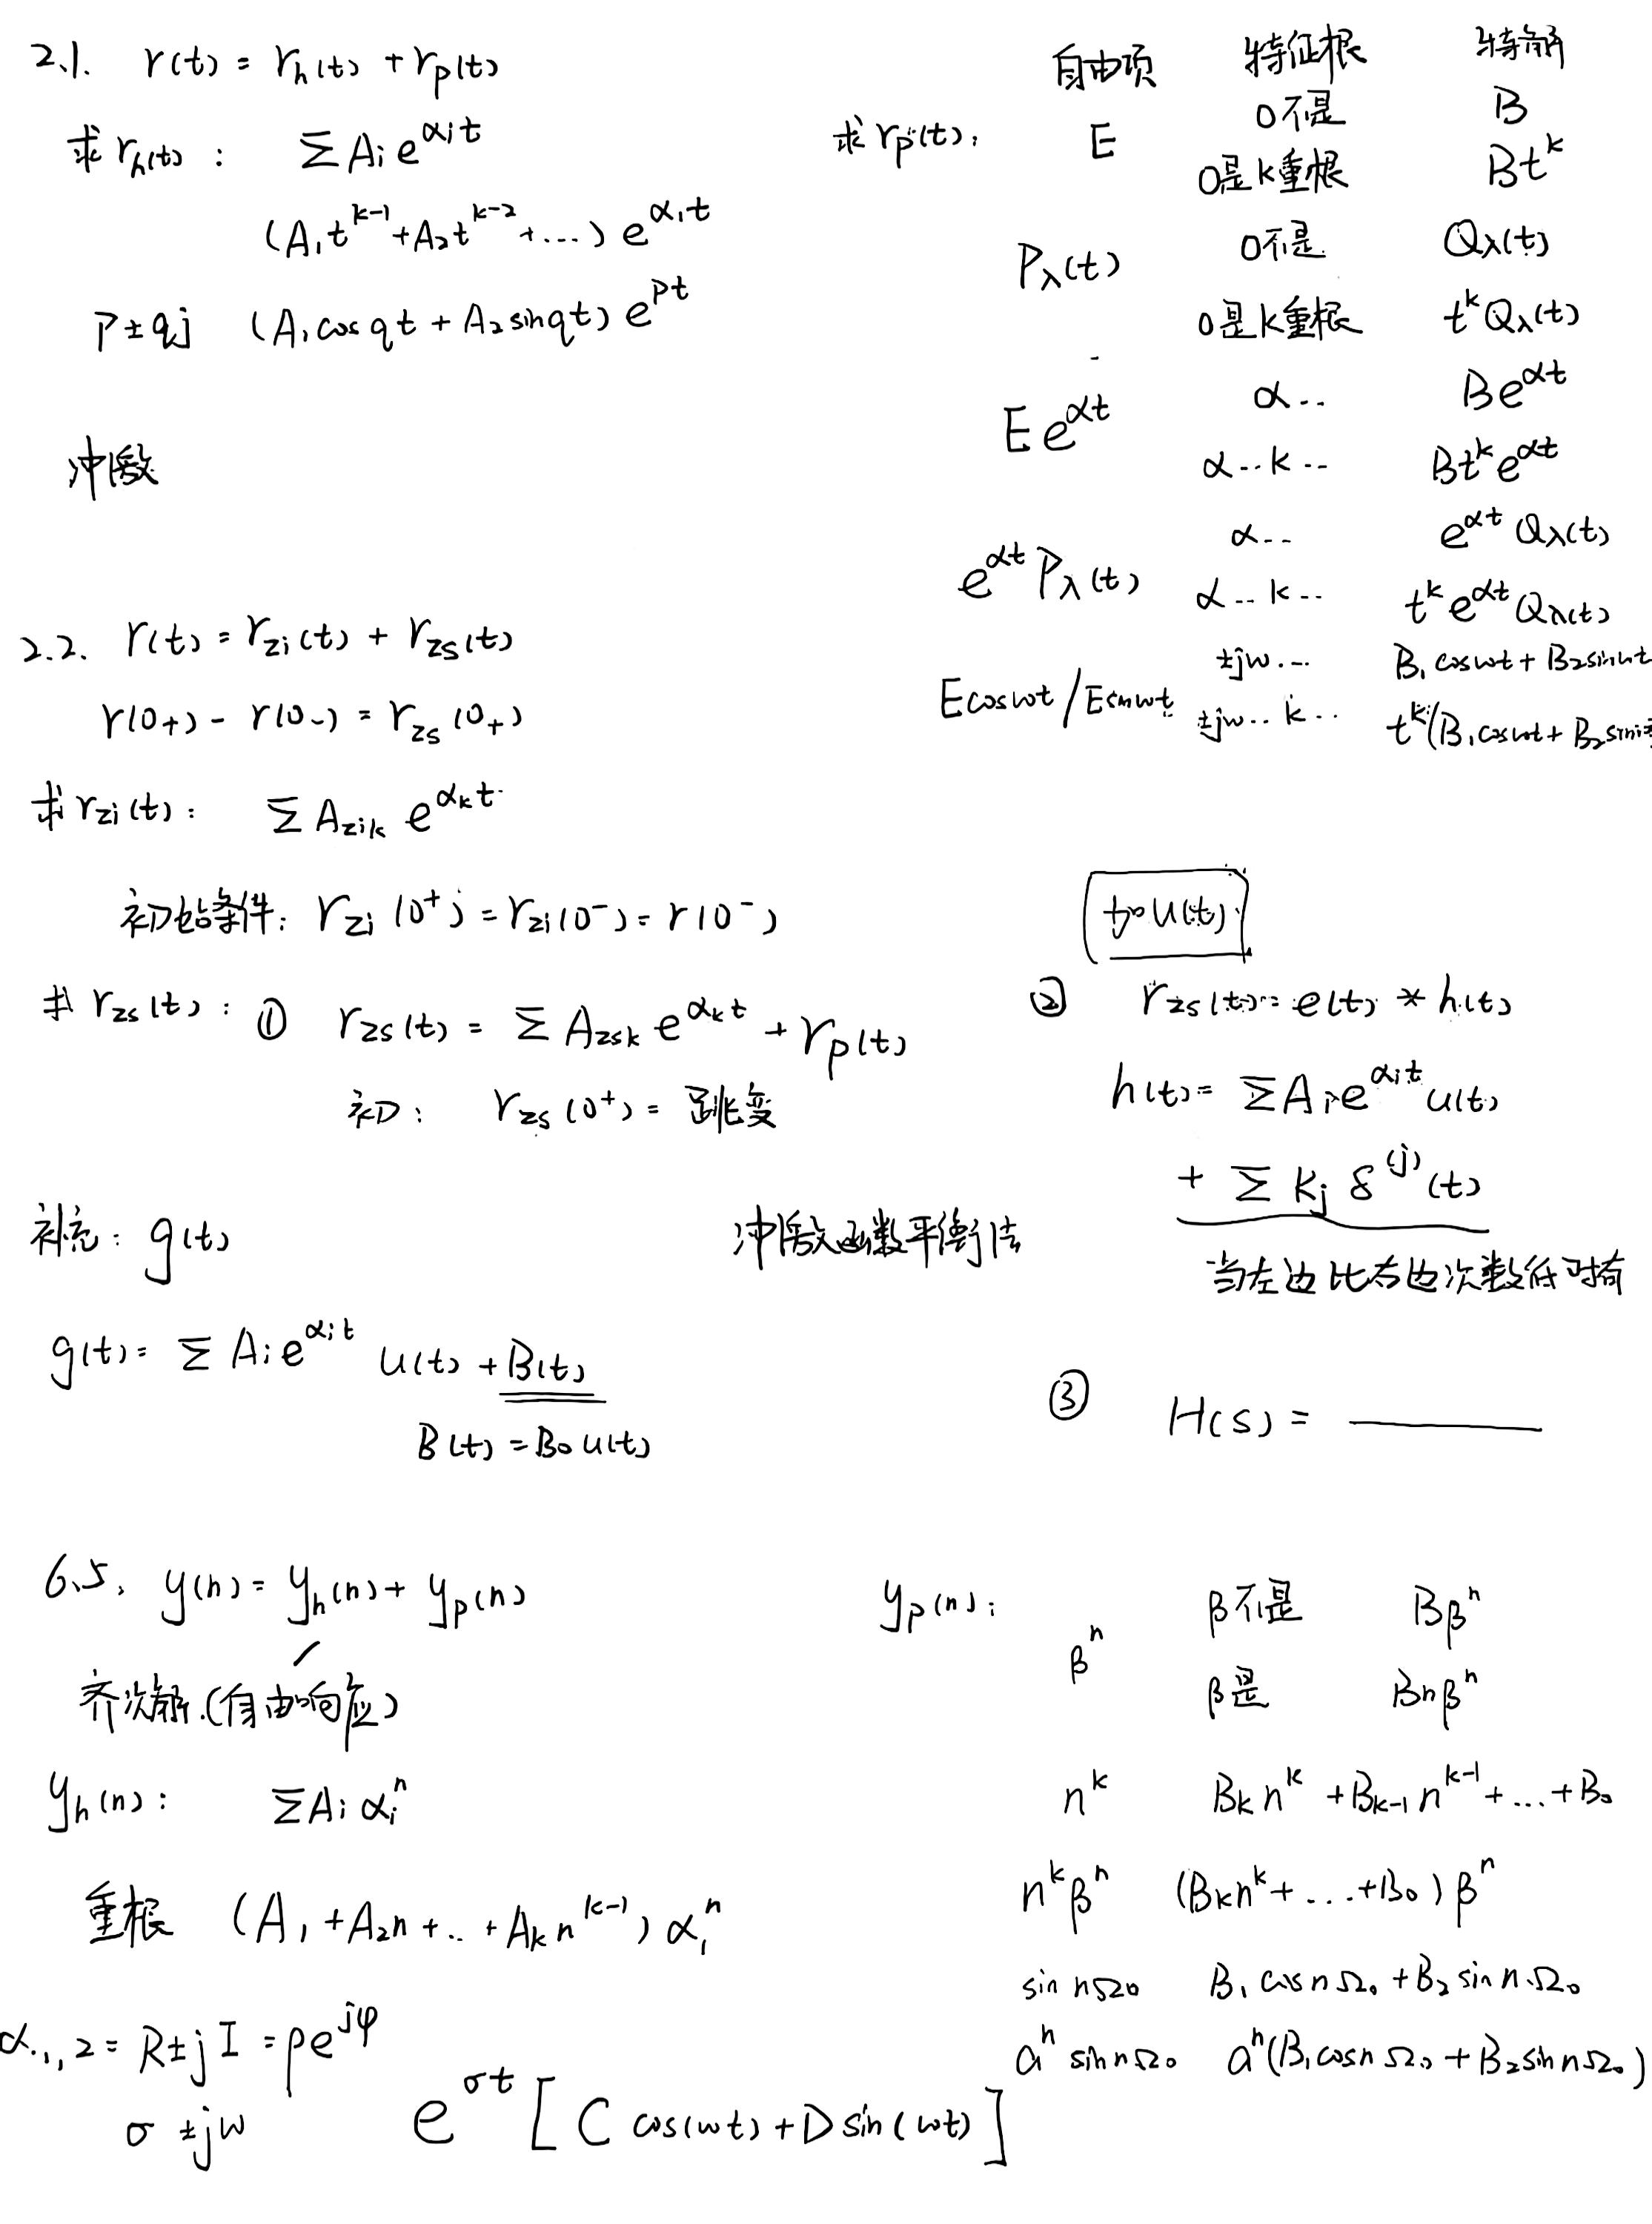 2.1. r(t) = r_h(t) + r_p(t)
求 r_h(t) : Σ A_i e^{α_i t}
(A_1 t^{k-1} + A_2 t^{k-2} + ...) e^{α_1 t}
P ± qj (A_1 cos qt + A_2 sin qt) e^{pt}
冲激
自由项 特征根 特解
求 r_p(t): E 0不是 B
0是k重根 Bt^k
P_λ(t) 0不是 Q_λ(t)
0是k重根 t^k Q_λ(t)
E e^{αt} α.. B e^{αt}
α..k.. Bt^k e^{αt}
e^{αt} P_λ(t) α.. e^{αt} Q_λ(t)
α..k.. t^k e^{αt} Q_λ(t)
E cosωt / E sinωt ±jω... B_1 cosωt + B_2 sinωt
±jω..k.. t^k(B_1 cosωt + B_2 sin
2.2. r(t) = r_zi(t) + r_zs(t)
r(0+) - r(0-) = r_zs(0+)
求 r_zi(t): Σ A_zik e^{α_k t}
初始条件: r_zi(0^+) = r_zi(0^-) = r(0^-)
求 r_zs(t): ① r_zs(t) = Σ A_zsk e^{α_k t} + r_p(t)
初: r_zs(0^+) = 跳变
加u(t)
② r_zs(t) = e(t) * h(t)
h(t) = Σ A_i e^{α_i t} u(t)
+ Σ K_j δ^{(j)}(t)
当左边比右边次数低时有
补充: g(t)
冲激函数平衡法
g(t) = Σ A_i e^{α_i t} u(t) + B(t)
B(t) = B_0 u(t)
③ H(s) = ———
6.5. y(n) = y_h(n) + y_p(n)
齐次解.(自由响应)
y_h(n): Σ A_i α_i^n
重根 (A_1 + A_2 n + .. + A_k n^{k-1}) α_1^n
α_{1,2} = R ± jI = ρe^{jφ}
σ ± jω e^{σt} [C cos(ωt) + D sin(ωt)]
y_p(n): β^n β不是 Bβ^n
β是 Bnβ^n
n^k B_k n^k + B_{k-1} n^{k-1} + ... + B_0
n^k β^n (B_k n^k + ... + B_0) β^n
sin nΩ_0 B_1 cos nΩ_0 + B_2 sin nΩ_0
a^n sin nΩ_0 a^n(B_1 cos nΩ_0 + B_2 sin nΩ_0)